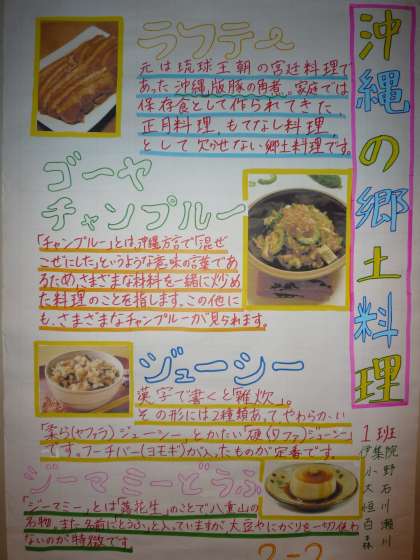 沖縄の郷土料理
ラフテー
元は琉球王朝の宮廷料理で
あった沖縄版豚の角煮。家庭では
保存食として作られてきた。
正月料理、もてなし料理
として欠かせない郷土料理です。
ゴーヤ
チャンプルー
「チャンプルー」とは沖縄方言で「混ぜ
こぜにした」というような意味の言葉であ
るため、さまざまな材料を一緒に炒め
た料理のことを指します。この他に
も、さまざまなチャンプルーが見られます。
ジューシー
漢字で書くと「雑炊」。
その形には2種類あってやわらかい
「柔ら(ヤファラ)ジューシー」とかたい「硬(クファ)ジューシー」
です。フーチバー(ヨモギ)が入ったものが定番です。
ジーマミーどうふ
「ジーマミー」とは「落花生」のことで八重山の
名物。また名前に「どうふ」と入っていますが大豆やにがりを一切使わ
ないのが特徴です
1班
伊集院
小野
大石
恒川
百瀬
森川
2-2